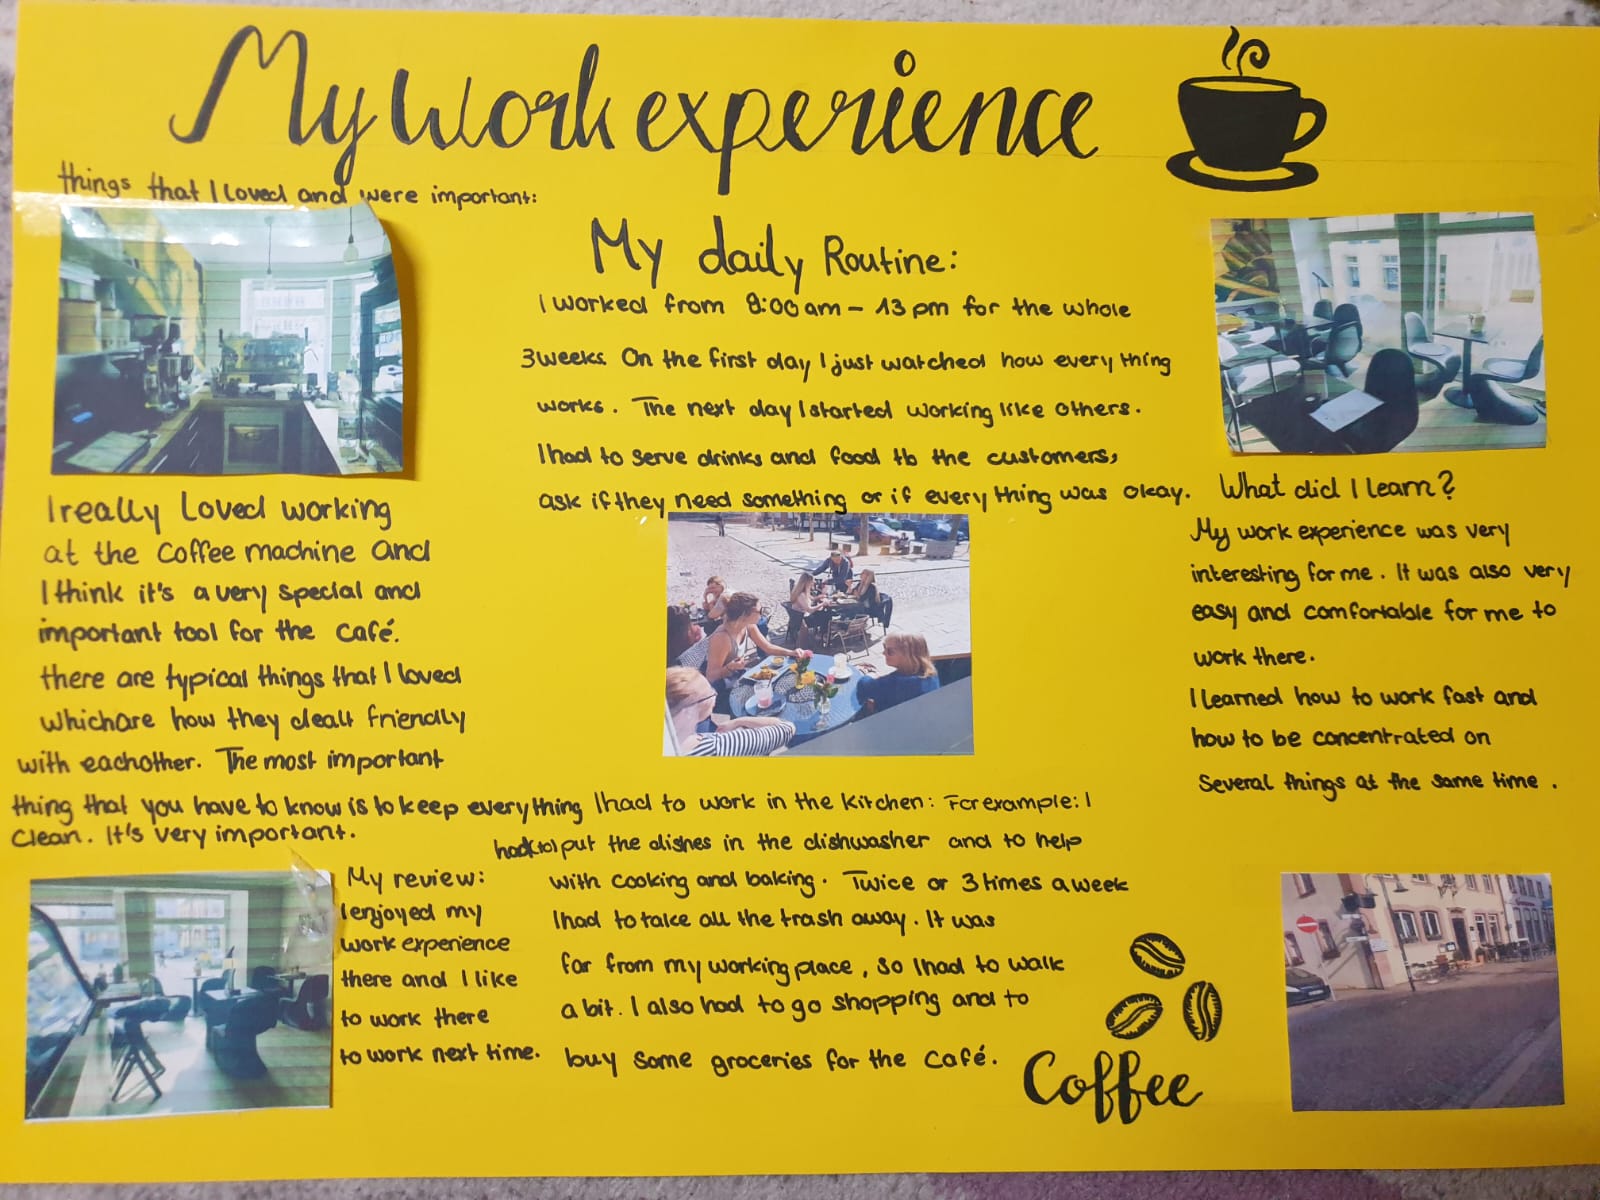 My Work experience
things that I loved and were important:
I really Loved working
at the Coffee machine and
I think it's a very special and
important tool for the Café.
there are typical things that I loved
which are how they dealt friendly
with eachother. The most important
thing that you have to know is to keep everything
Clean. It's very important.
My review:
I enjoyed my
work experience
there and I like
to work there
to work next time.
My daily Routine:
I worked from 8:00 am - 13 pm for the whole
3 weeks. On the first day I just watched how every thing
works. The next day I started working like others.
I had to serve drinks and food to the customers,
ask if they need something or if every thing was okay.
I had to work in the kitchen: For example: I
had to put the dishes in the dishwasher and to help
with cooking and baking. Twice or 3 times a week
I had to take all the trash away. It was
far from my working place, so I had to walk
a bit. I also had to go shopping and to
buy some groceries for the Café.
What did I learn?
My work experience was very
interesting for me. It was also very
easy and comfortable for me to
work there.
I learned how to work fast and
how to be concentrated on
Several things at the same time.
Coffee